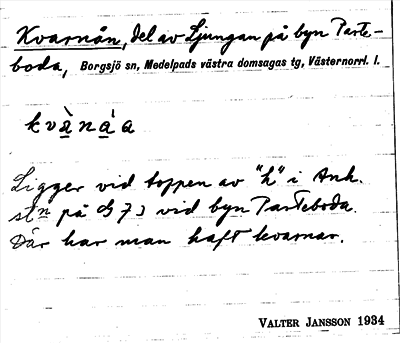 Kvarnån, del av Ljungan på byn Parte-
boda, Borgsjö sn, Medelpads västra domsagas tg, Västernorrl. l.
kvànáa
Ligger vid toppen av "h" i Anh.
stn på G 73 vid byn Parteboda.
Där har man haft kvarnar.
VALTER JANSSON 1934